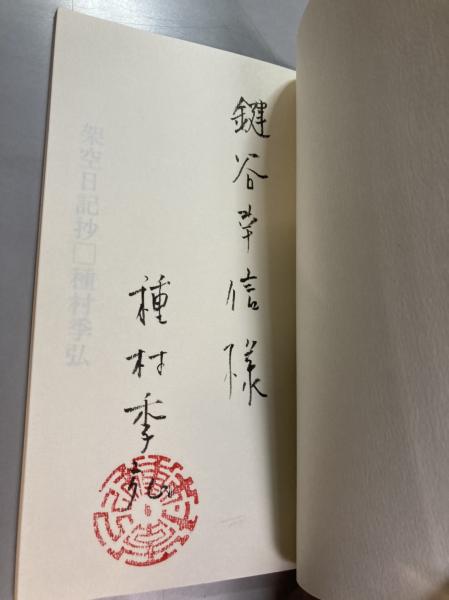 鍵谷幸信様
種村季弘
架空日記抄□種村季弘